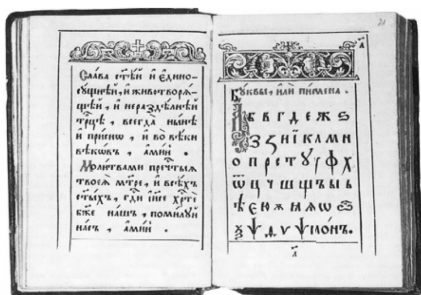 21
а҃
Сла́ва ст҃ѣ́й и҆ є҆дино-
сꙋ́щнѣй, и҆ животворѧ́-
щей, и҆ нераздѣ́лнѣй
трⷪ҇цѣ, всегда̀ ны́нѣ
и҆ при́снѡ, и҆ во вѣ́ки
вѣкѡ́въ, а҆ми́нь.
Моли́твами пречⷭ҇тыѧ
твоеѧ̀ мт҃ре, и҆ всѣ́хъ
ст҃ы́хъ, гдⷭ҇и і҆и҃се хрⷭ҇те
бж҃е на́шъ, поми́лꙋй
на́съ, а҆ми́нь.
Бꙋ́квы, и҆лѝ пи́смена.
А б в г д е ж ѕ
з ꙁ и ї к л м н
о п р с т ꙋ ф х
ѿ ц ч ш щ ъ ы ь
ѣ є ю ѧ ѡ
ѯ ѱ ѵ ѱило́нъ.